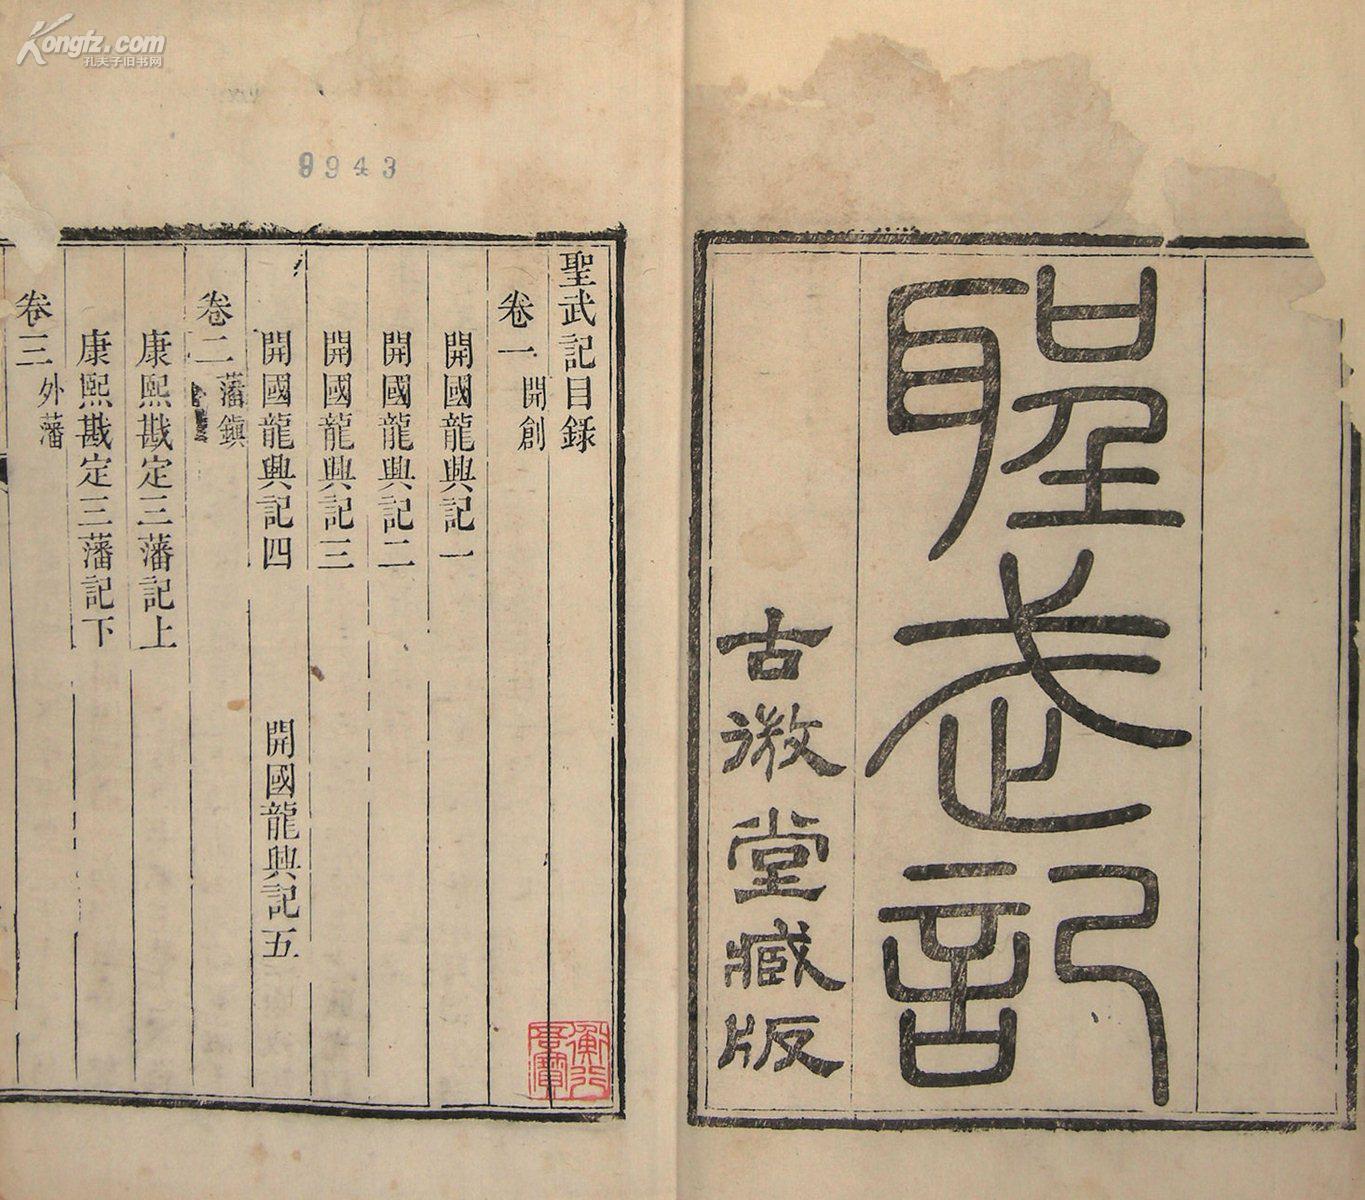 聖武記
古微堂藏版
聖武記目録
卷一 開創
開國龍興記一
開國龍興記二
開國龍興記三
開國龍興記四 開國龍興記五
卷二 藩鎮
康熙戡定三藩記上
康熙戡定三藩記下
卷三 外藩
9943
Kongfz.com
孔夫子旧书网